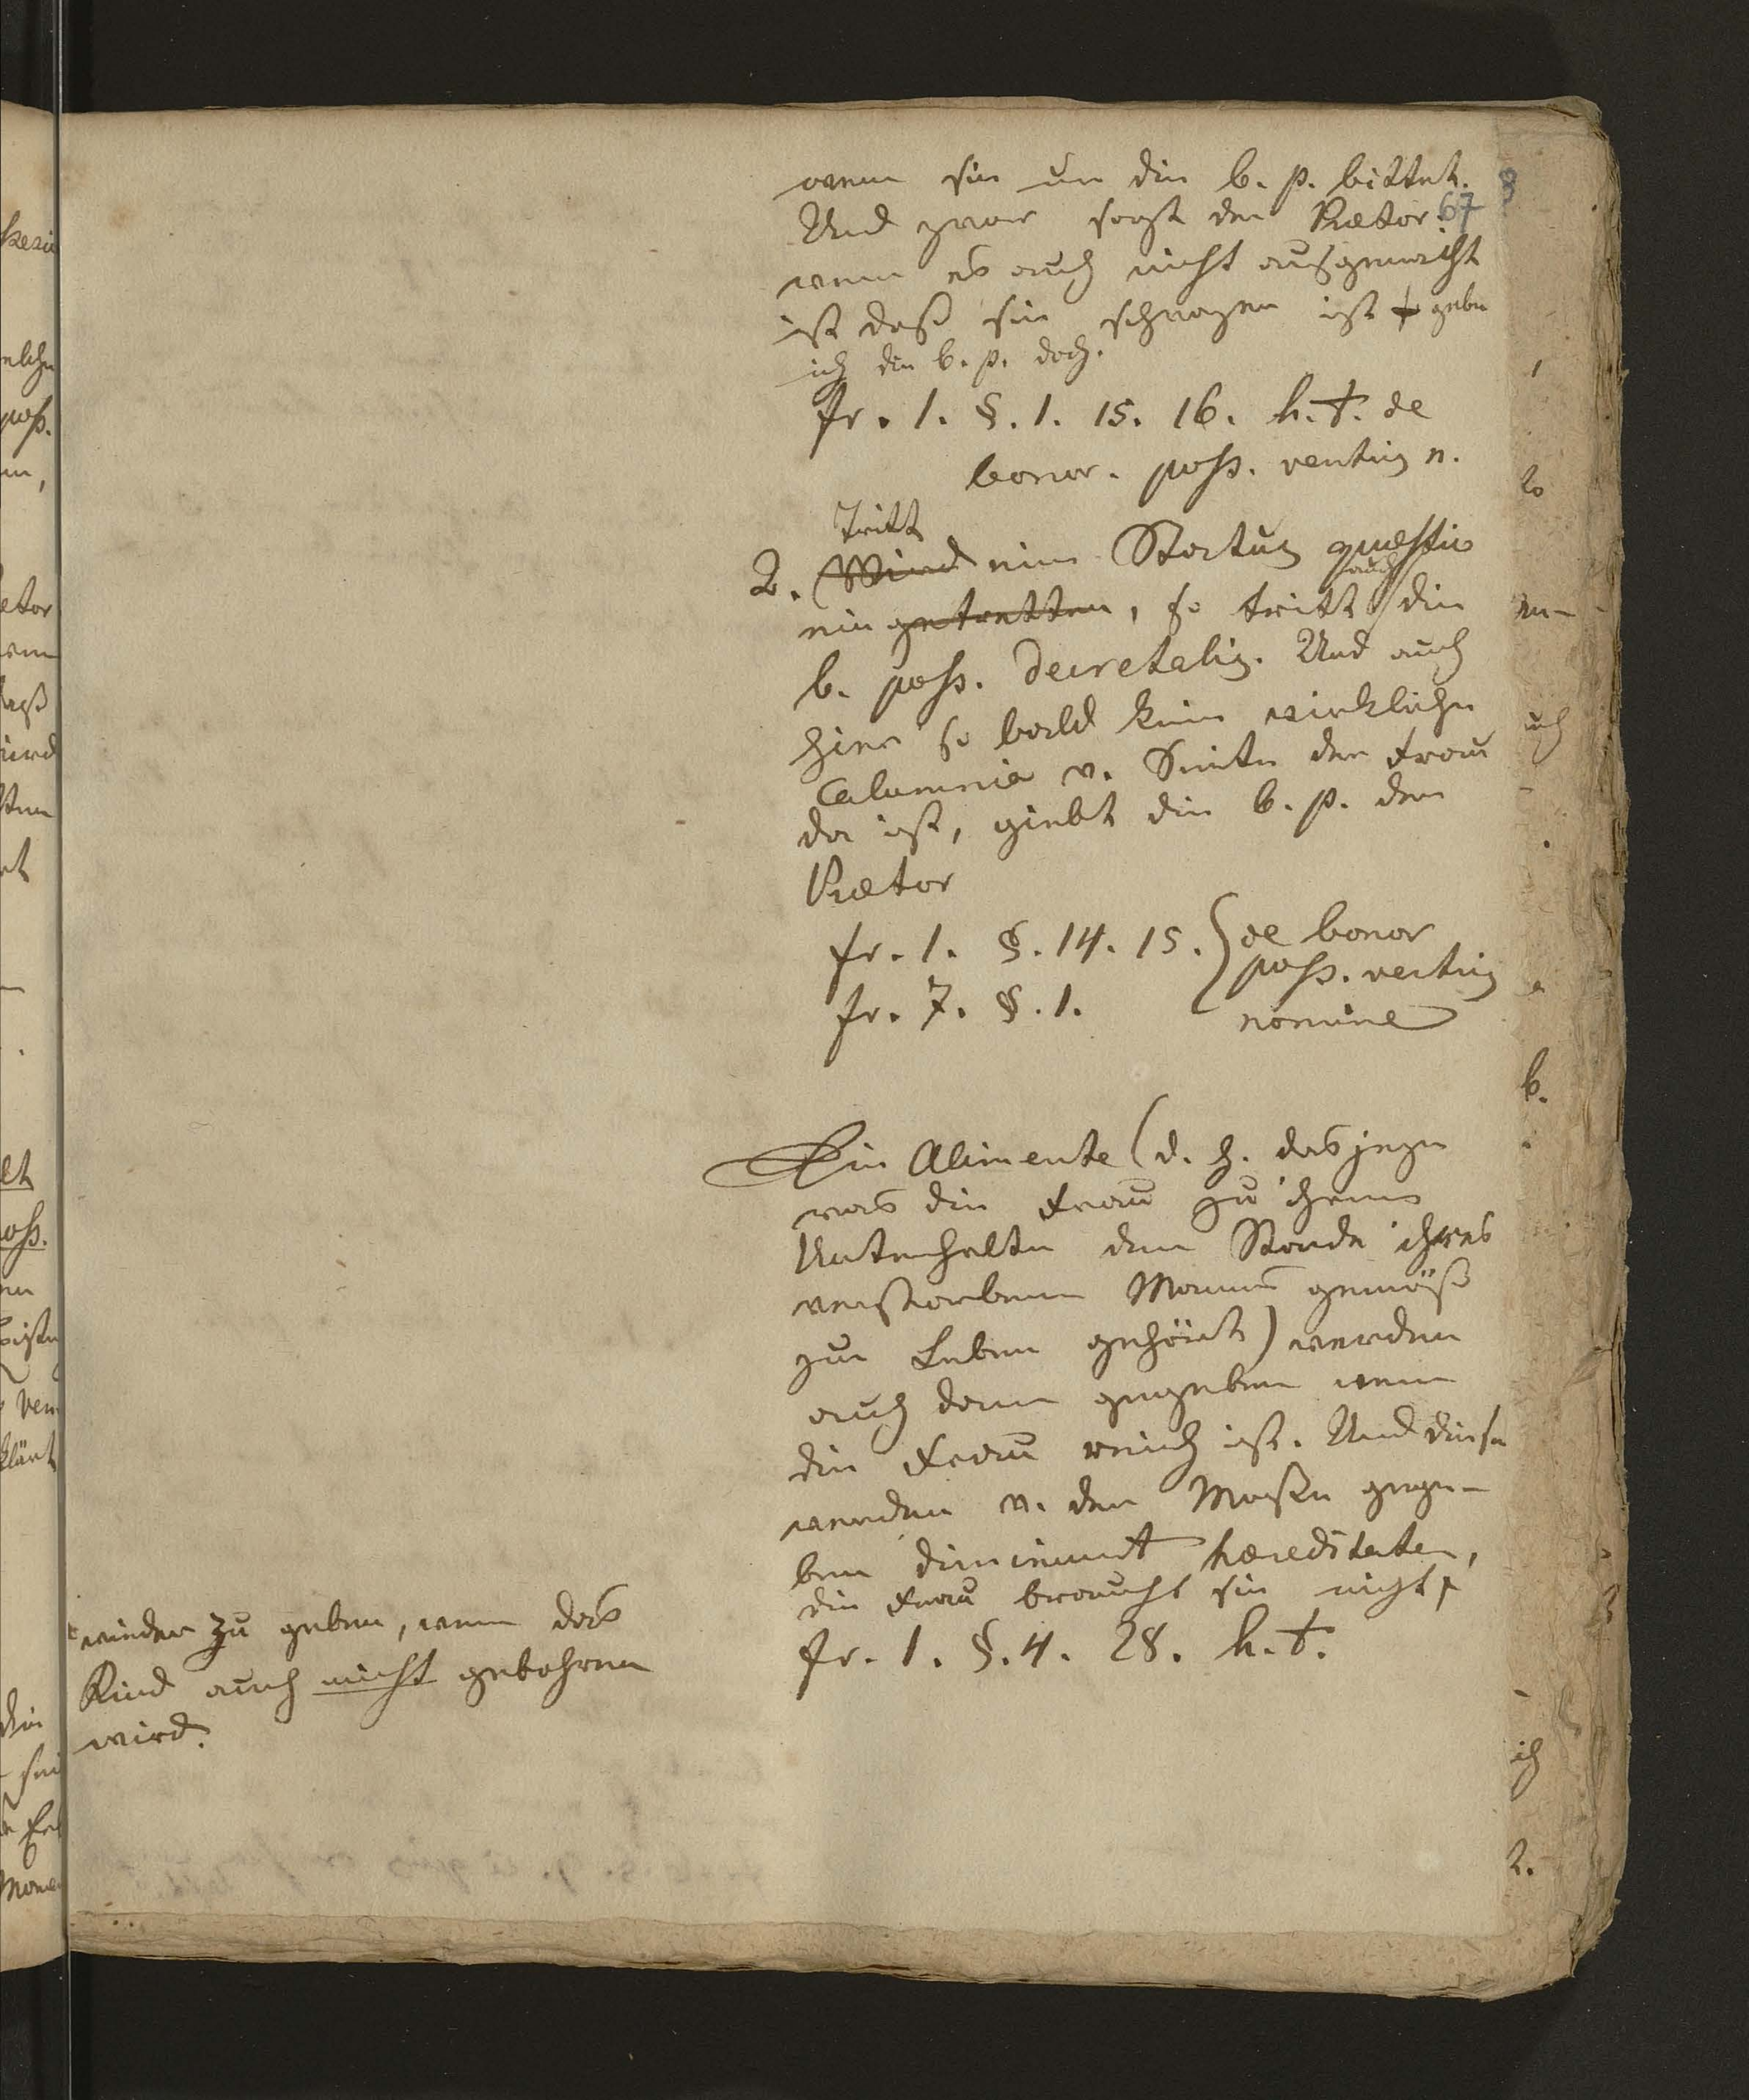 wenn sie um die b. p. bittet.
67
Und zwar sagt der Prætor:
wenn es auch nicht ausgemacht
ist daß sie schwanger ist gebe
ich die b. p. doch.
fr. 1. §. 1. 15. 16. h. t. de
bonor. poss. ventris n.
Tritt
2. Wird eine Status quæstio
auch
ein getretten, so tritt die
b. poss. decretalis. Und auch
hier so bald keine wirkliche
Calumnia v. Seiten der Frau
da ist, giebt die b. p. der
Prætor
fr. 1. §. 14. 15. de bonor
poss. ventris
fr. 7. §. 1. nomine
Die Alimente (d. h. dasjenige
was die Frau zu ihrem
Unterhalte dem Stande ihres
verstorbenen Mannes gemäß
zu Leben gehört) werden
auch dann gegeben wenn
die Frau reich ist. Und diese
werden v. der Masse gege-
ben diminuunt hæreditatem,
die Frau braucht sie nicht
fr. 1. §. 4. 28. h. t.
wieder zu geben, wenn das
Kind auch nicht gebohren
wird.